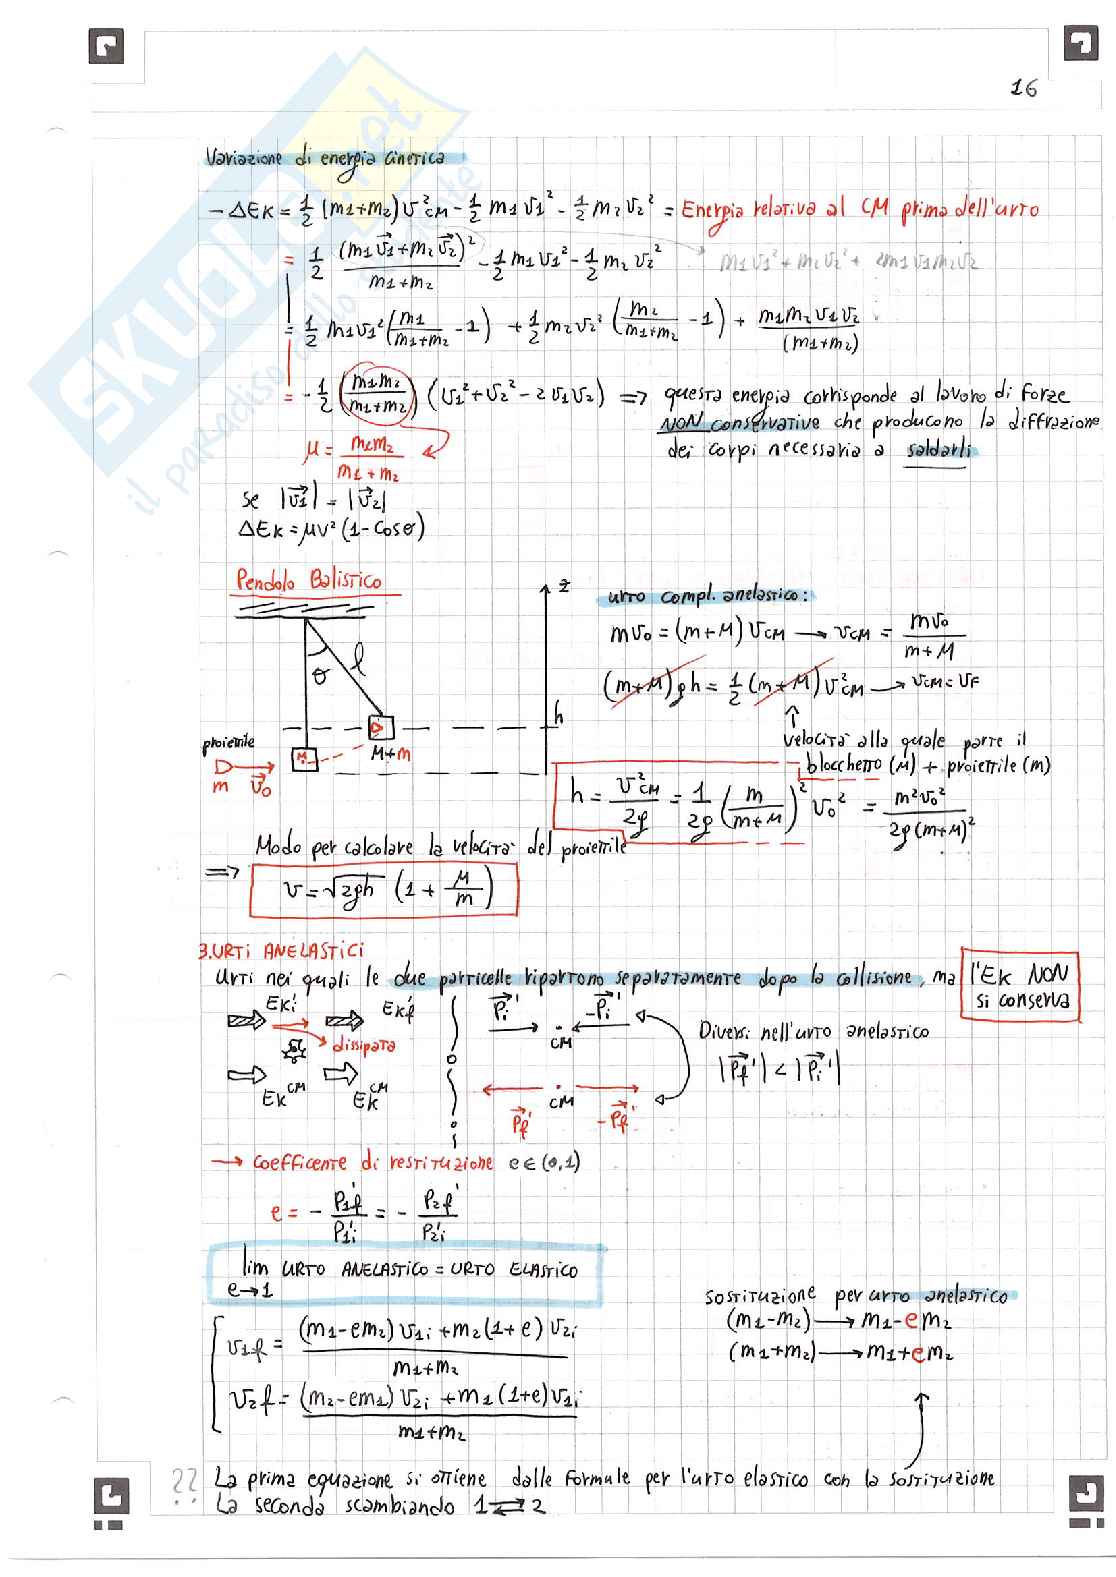 16
Variazione di energia cinetica
- ΔEK = 1/2 (m1+m2) v²CM - 1/2 m1 v1² - 1/2 m2 v2² = Energia relativa al CM prima dell'urto
= 1/2 (m1v⃗1+m2v⃗2)²/(m1+m2) - 1/2 m1v1² - 1/2 m2 v2² m1v1² + m2v2² + 2m1v1m2v2
= 1/2 m1v1² (m1/(m1+m2) - 1) + 1/2 m2v2² (m2/(m1+m2) - 1) + m1m2v1v2/(m1+m2)
= - 1/2 (m1m2/(m1+m2)) (v1²+v2² - 2v1v2) => questa energia corrisponde al lavoro di forze
NON conservative che producono la diffrazione
dei corpi necessaria a saldarli
μ = m1m2/(m1+m2)
se |v⃗1| = |v⃗2|
ΔEK = μv² (1-cosθ)
Pendolo Balistico
z
θ
l
h
proiettile
m v⃗0
M
M+m
urto compl. anelastico:
mv0 = (m+M) vCM → vCM = mv0/(m+M)
(m+M)gh = 1/2 (m+M) v²CM → vCM = vF
velocità alla quale parte il
blocchetto (M) + proiettile (m)
h = v²CM/2g = 1/2g (m/(m+M))² v0² = m²v0²/2g(m+M)²
Modo per calcolare la velocità del proiettile
=> v = √2gh (1 + M/m)
3. URTI ANELASTICI
Urti nei quali le due particelle ripartono separatamente dopo la collisione, ma l'EK NON
si conserva
EKi' EKf'
dissipata
EK^CM EK^CM
P⃗i' -P⃗i'
CM
P⃗f' CM -P⃗f'
Diversi nell'urto anelastico
|P⃗f'| < |P⃗i'|
→ coefficente di restituzione e ∈ (0,1)
e = - P1f'/P1i' = - P2f'/P2i'
lim URTO ANELASTICO = URTO ELASTICO
e→1
v1f = ((m1-em2) v1i + m2 (1+e) v2i)/(m1+m2)
v2f = ((m2-em1) v2i + m1 (1+e) v1i)/(m1+m2)
sostituzione per urto anelastico
(m1-m2) → m1-em2
(m1+m2) → m1+em2
?? La prima equazione si ottiene dalle formule per l'urto elastico con la sostituzione
La seconda scambiando 1 ⇄ 2
SKUOLA.net